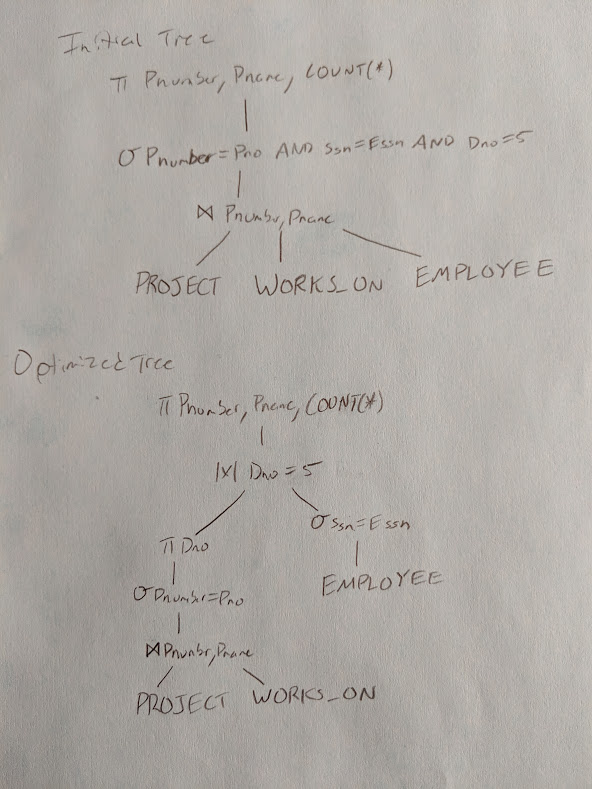 Initial Tree
π Pnumber, Pname, COUNT(*)
σ Pnumber=Pno AND Ssn=Essn AND Dno=5
⋈ Pnumbr, Pname
PROJECT WORKS_ON EMPLOYEE
Optimized Tree
π Pnumber, Pname, COUNT(*)
|X| Dno=5
σ Ssn=Essn
π Dno
EMPLOYEE
σ Pnumber=Pno
⋈ Pnumbr, Pname
PROJECT WORKS_ON